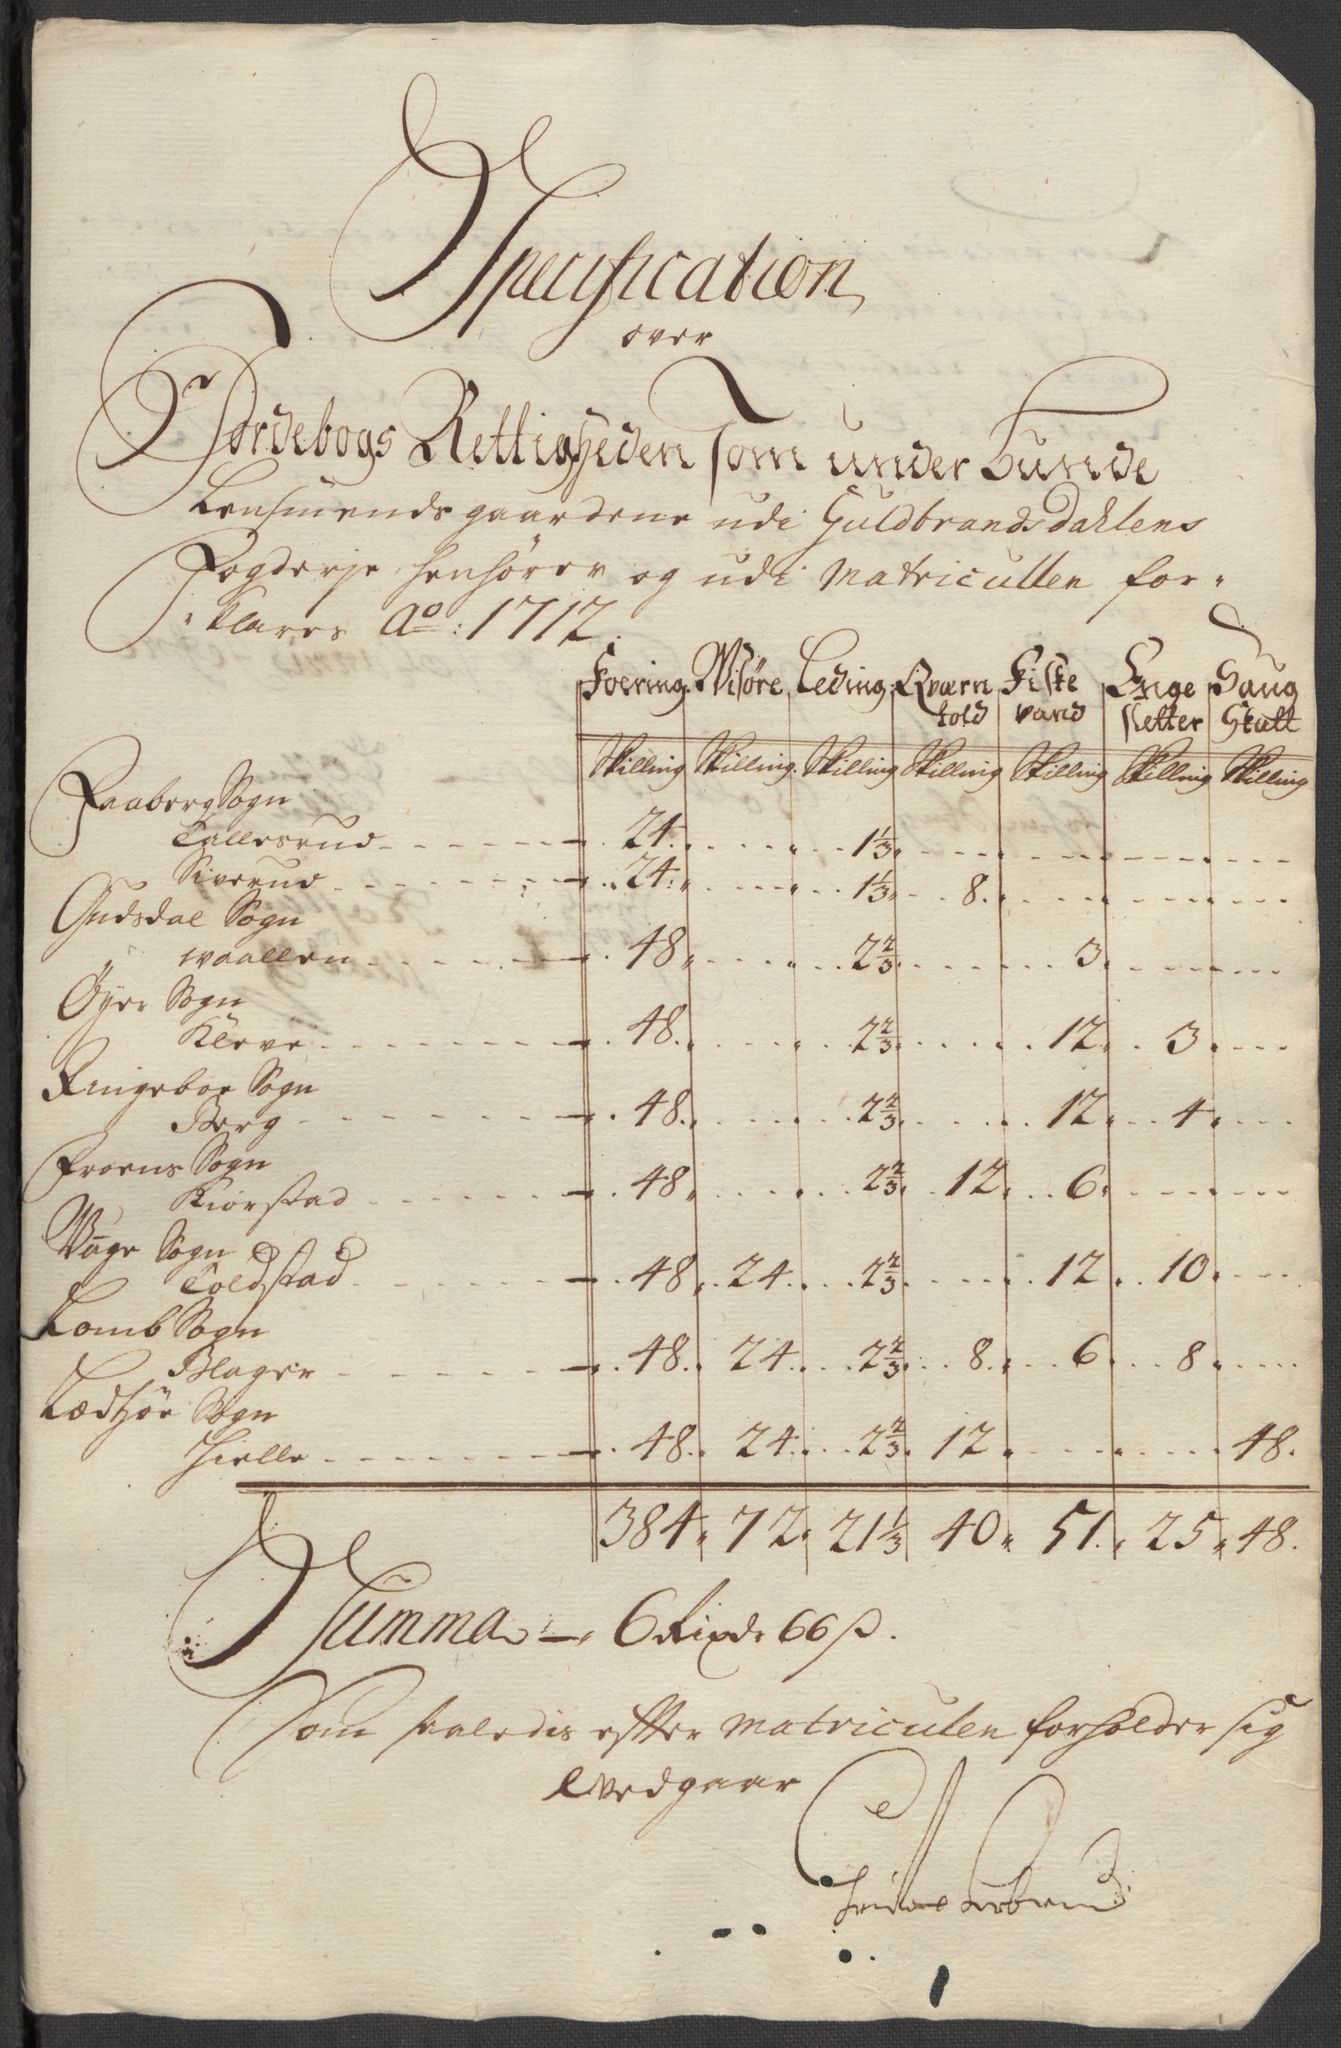 Specification
over
Jordebogs Rettigheden Som under Bunde
Lensmends gaardene udi Guldbrandsdahlens
Fogderje henhörer og udi Matricullen for-
klares Ao: 1712.
Foering Wisöre Leding Qværn told Fiske vand Enge Sletter Saug Skatt
Skilling Skilling Skilling Skilling Skilling Skilling Skilling
Faaberg Sogn
Tallesrud 24. 1⅓
Siverud 24. 1⅓ 8.
Gudsdal Sogn
Waallen 48 2⅔ 3
Öyer Sogn
Kleve 48. 2⅔ 12. 3
Ringeboe Sogn
Berg 48. 2⅔ 12 4
Froens Sogn
Kiorstad 48 2⅔ 12 6
Wage Sogn
Toldstad 48 24 2⅔ 12 10
Lomb Sogn
Blager 48. 24 2⅔ 8. 6 8
Lædhör Sogn
Hielle 48. 24 2⅔ 12 48.
384 72 21⅓ 40 51. 25 48.
Summa 6 Rixdr 66 ß.
Som saaledis efter Matriculen forholder sig